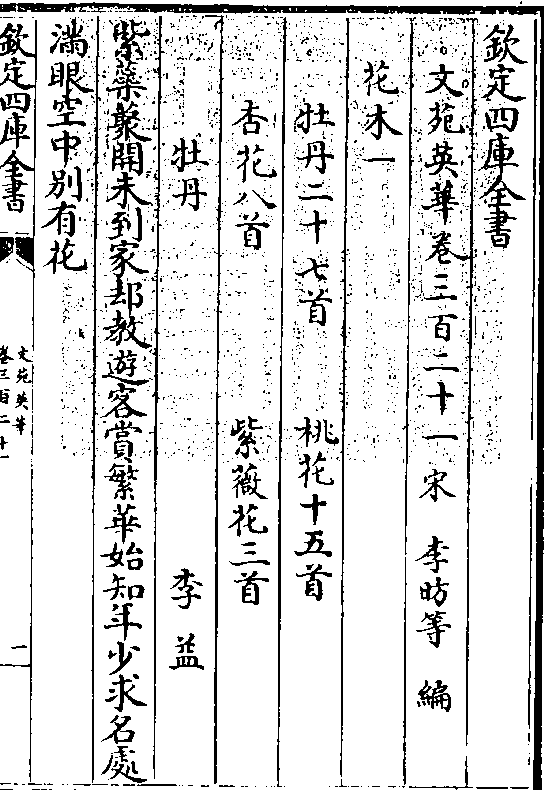 欽定四庫全書
文苑英華卷三百二十一 宋 李昉等 編
花木一
牡丹二十七首 桃花十五首
杏花八首 紫薇花三首
牡丹 李益
紫蘂叢開未到家却教遊客賞繁華始知年少求名處
滿眼空中別有花
欽定四庫全書
文苑英華
卷三百二十一
一